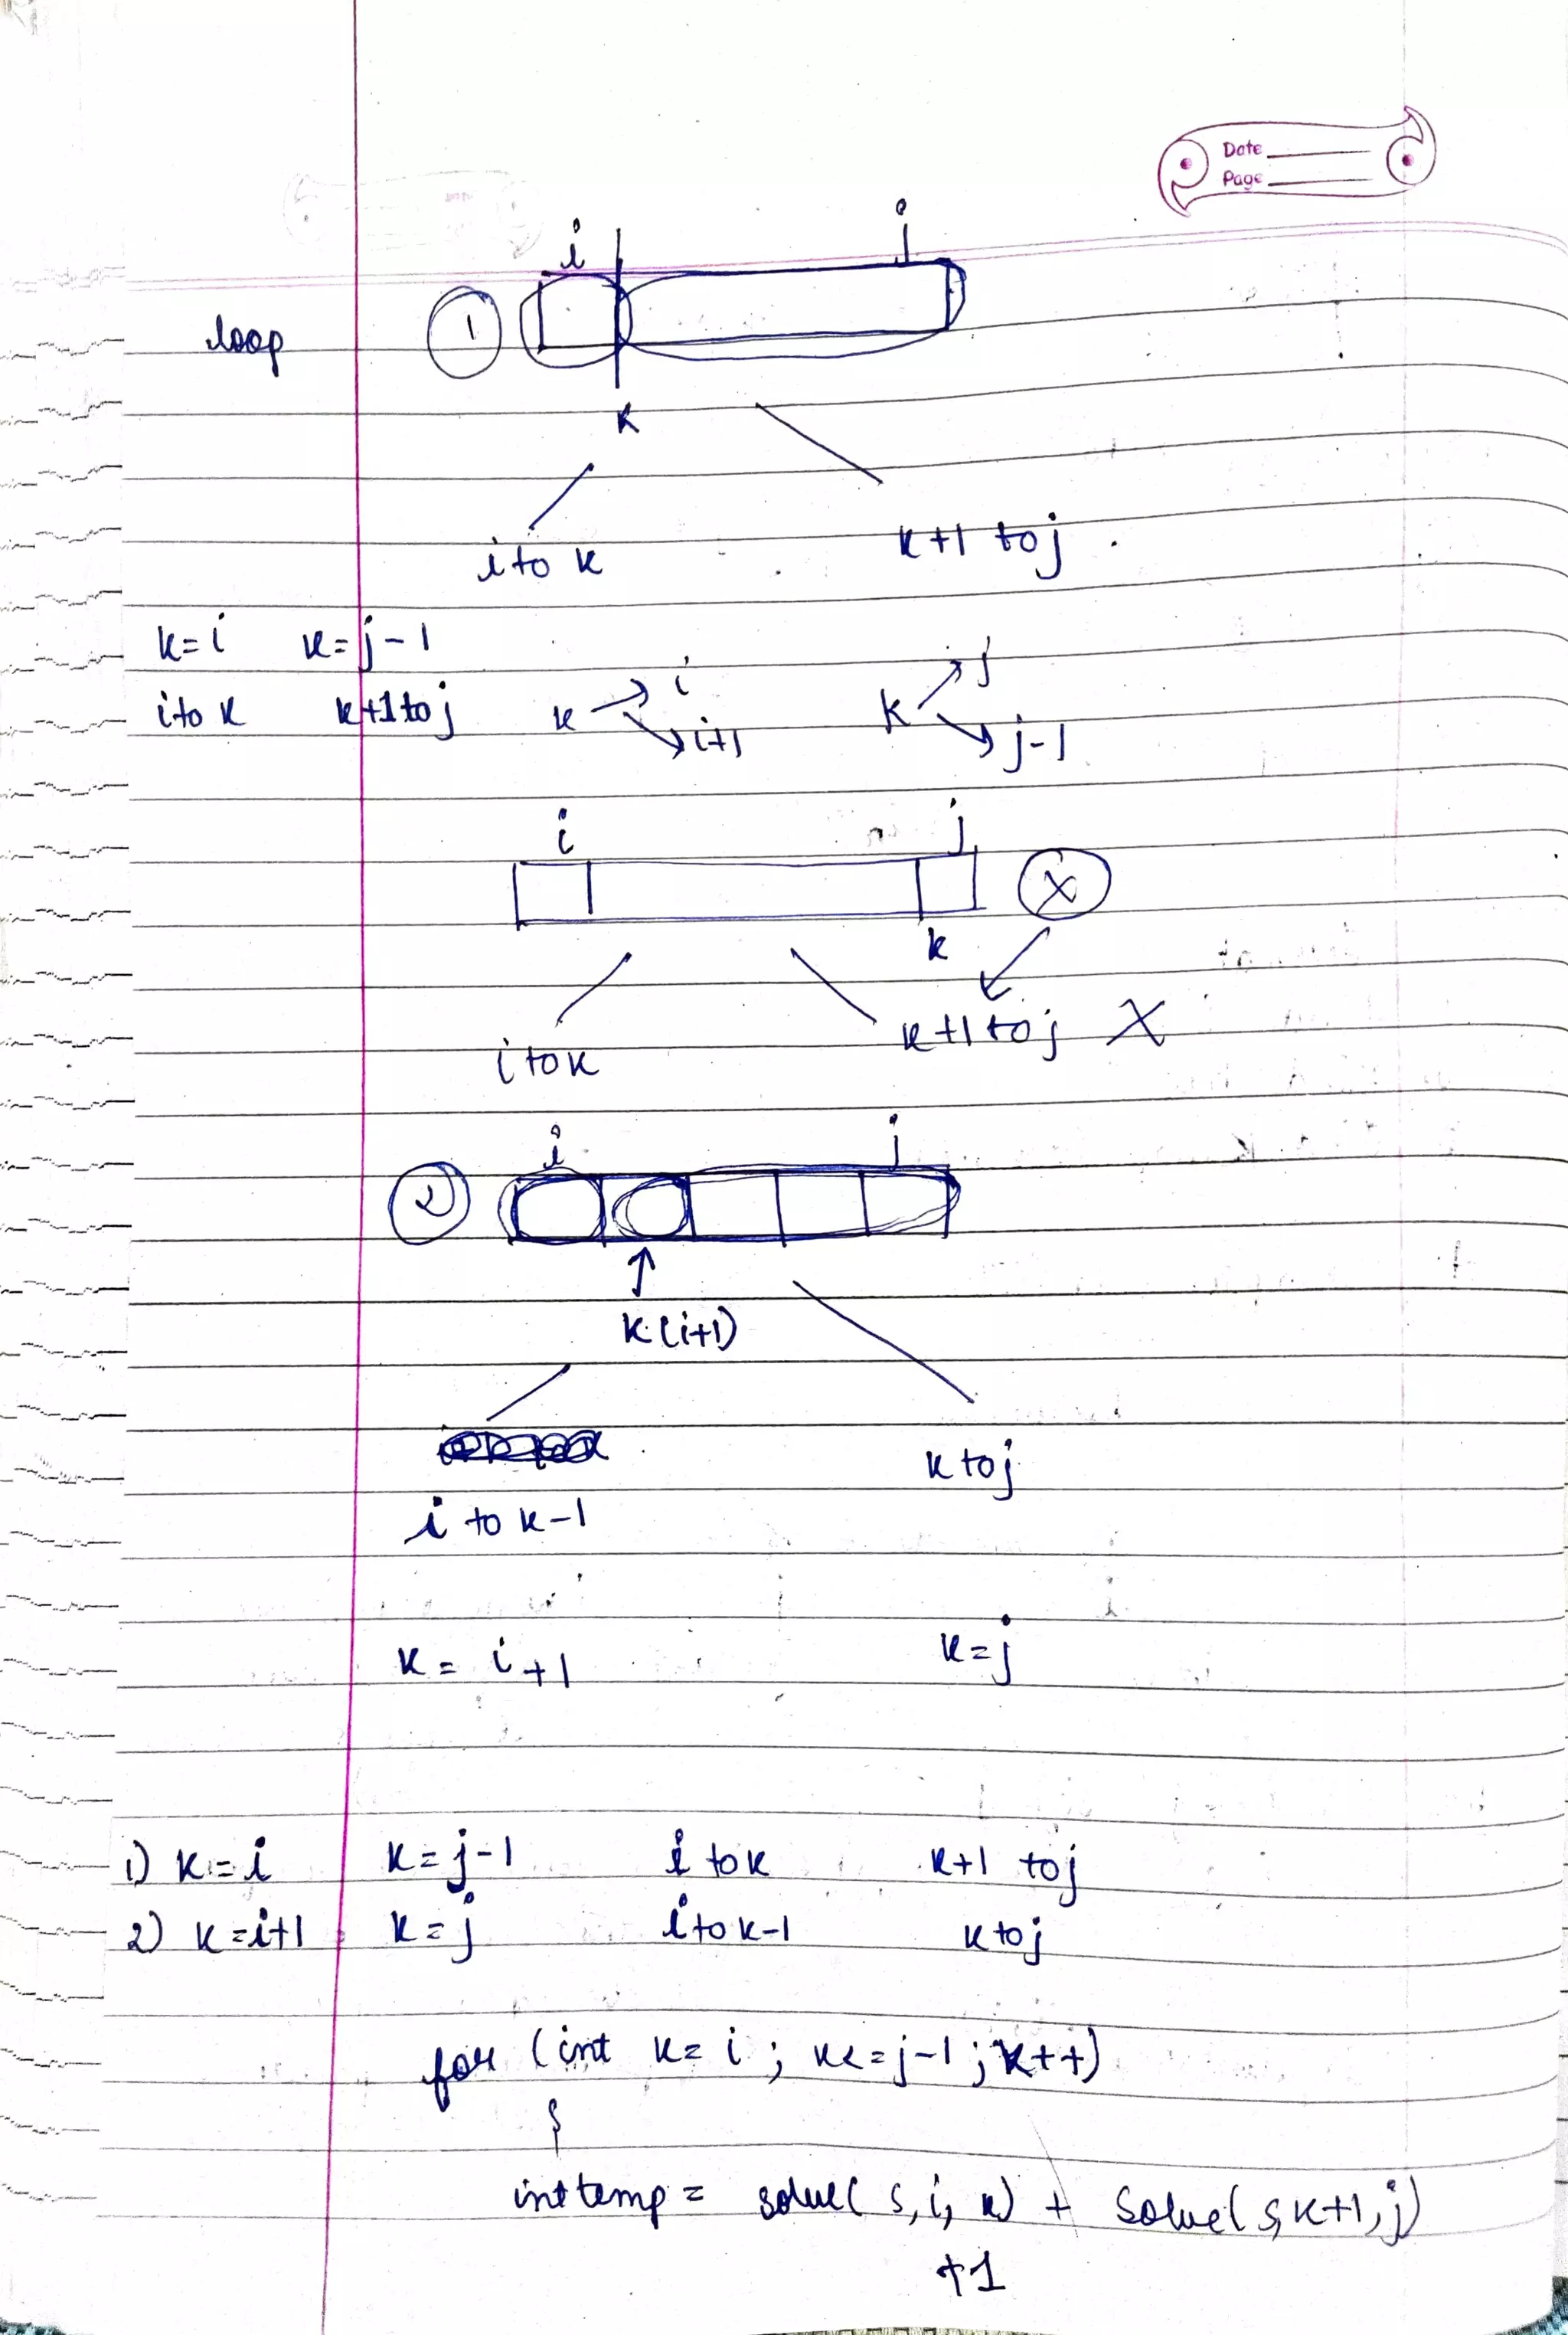 Date
Page
i j
loop 1
K
i to K K+1 to j
K=i K=j-1
i to K K+1 to j K i i+1 K j j-1
i j
X
K
i to K K+1 to j X
i j
2
K (i+1)
K to j
i to K-1
K = i+1 K=j
1) K=i K=j-1 i to K K+1 to j
2) K=i+1 K=j i to K-1 K to j
for (int K= i ; K<=j-1 ; K++)
{
int temp = solve( s, i, K) + Solve( s, K+1, j)
+1